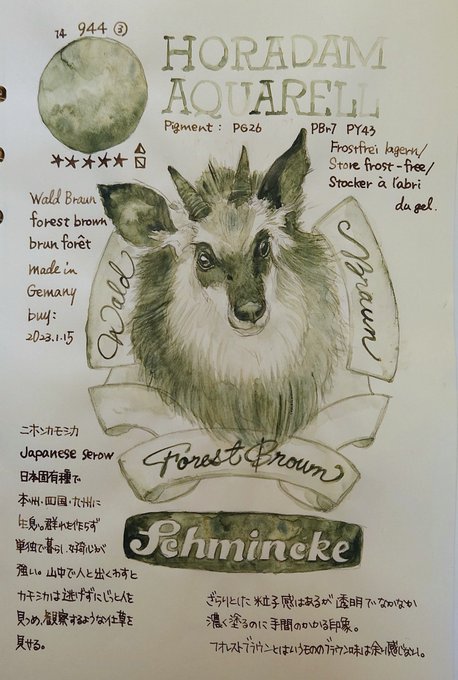 14 944 ③
HORADAM
AQUARELL
Pigment: PG26 PBr7 PY43
★★★★★
Frostfrei lagern/
Store frost-free/
Stocker à l'abri
du gel.
Wald Braun
forest brown
brun forêt
made in
Gemany
buy:
2023.1.15
Wald
Braun
Forest Brown
Schmincke
ニホンカモシカ
Japanese serow
日本固有種で
本州・四国・九州に
生息。群れを作らず
単独で暮らし、好奇心が
強い。山中で人と出くわすと
カモシカは逃げずにじっと人を
見つめ、観察するような仕草を
見せる。
ざらりとした粒子感はあるが透明でなかなか
濃く塗るのに手間のかかる印象。
フォレストブラウンとはいうもののブラウン味は余り感じない。